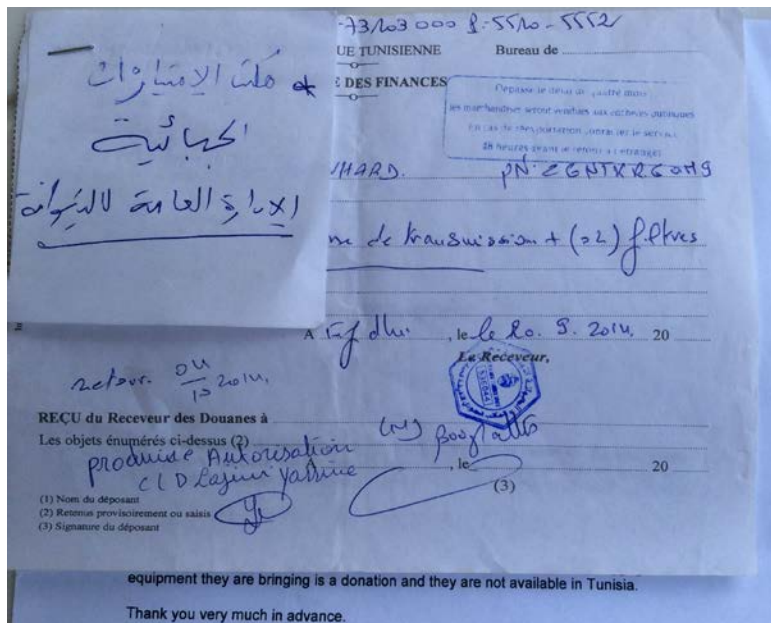 73203000 8-5510-5552
UE TUNISIENNE Bureau de
E DES FINANCES
Dépassé le délai de quatre mois
les marchandises seront vendues aux enchères publiques
En cas de réexportation contactez le service
48 heures avant le retour à l'étranger
* مكتب الامتيازات
الجبائية
الإدارة العامة للديوانة
HARD. PN:
de transmission + (02) filtres
A , le le 20. 9. 2014. 20
Le Receveur,
retour. 04/10 2014.
REÇU du Receveur des Douanes à
Les objets énumérés ci-dessus (2)
produire Autorisation
A , le 20
C/D Lajimi Yassine
(3)
(1) Nom du déposant
(2) Retenus provisoirement ou saisis
(3) Signature du déposant
equipment they are bringing is a donation and they are not available in Tunisia.
Thank you very much in advance.